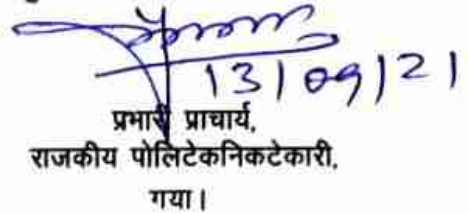 13/09/21
प्रभारी प्राचार्य,
राजकीय पोलिटेकनिकटेकारी,
गया।